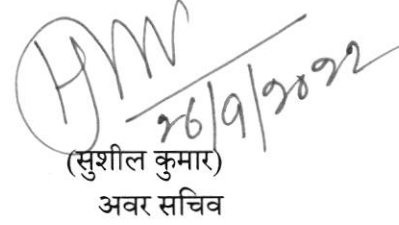 26/9/2022
(सुशील कुमार)
अवर सचिव